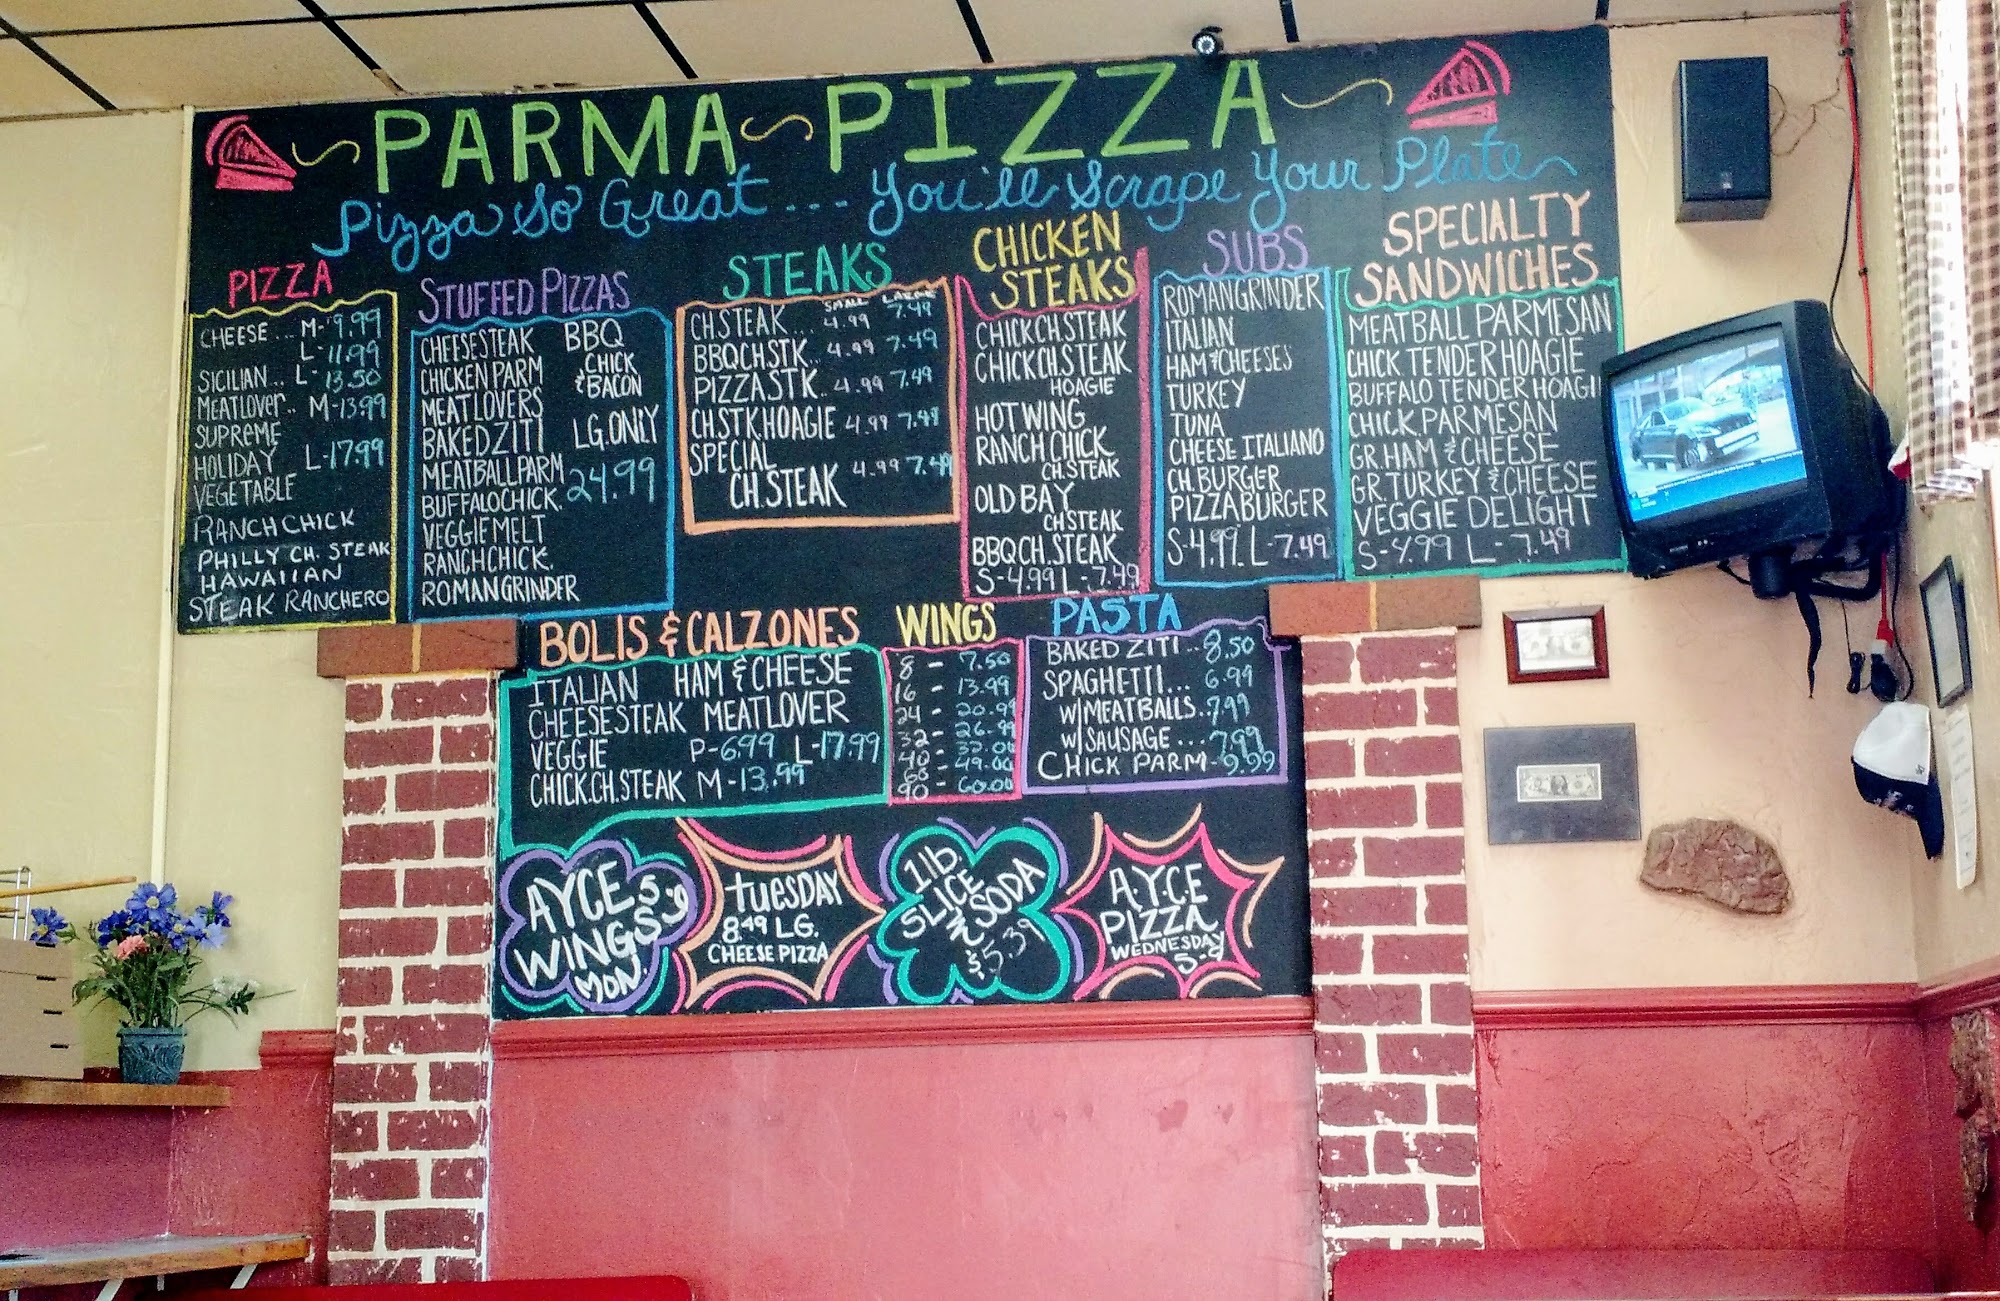 PARMA PIZZA
Pizza So Great... You'll Scrape Your Plate
PIZZA
CHEESE... M-9.99
L-11.99
SICILIAN.. L-13.50
MEATLOVER.. M-13.99
SUPREME
HOLIDAY L-17.99
VEGETABLE
RANCH CHICK
PHILLY CH. STEAK
HAWAIIAN
STEAK RANCHERO
STUFFED PIZZAS
CHEESESTEAK BBQ
CHICK
CHICKEN PARM & BACON
MEATLOVERS
BAKED ZITI LG. ONLY
MEATBALL PARM 24.99
BUFFALO CHICK.
VEGGIE MELT
RANCH CHICK.
ROMAN GRINDER
STEAKS
SMALL LARGE
CH. STEAK... 4.99 7.49
BBQ CH. STK.. 4.99 7.49
PIZZA STK.. 4.99 7.49
CH. STK. HOAGIE 4.99 7.49
SPECIAL
CH. STEAK 4.99 7.49
CHICKEN
STEAKS
CHICK CH. STEAK
CHICK CH. STEAK
HOAGIE
HOT WING
RANCH CHICK
CH. STEAK
OLD BAY
CH STEAK
BBQ CH. STEAK
S-4.99 L-7.49
SUBS
ROMAN GRINDER
ITALIAN
HAM & CHEESE
TURKEY
TUNA
CHEESE ITALIANO
CH. BURGER
PIZZA BURGER
S-4.99 L-7.49
SPECIALTY
SANDWICHES
MEATBALL PARMESAN
CHICK TENDER HOAGIE
BUFFALO TENDER HOAGI
CHICK PARMESAN
GR. HAM & CHEESE
GR. TURKEY & CHEESE
VEGGIE DELIGHT
S-4.99 L-7.49
BOLIS & CALZONES
ITALIAN HAM & CHEESE
CHEESESTEAK MEATLOVER
VEGGIE P-6.99 L-17.99
CHICK. CH. STEAK M-13.99
WINGS
8 - 7.50
16 - 13.99
24 - 20.99
32 - 26.99
40 - 32.00
60 - 49.00
90 - 60.00
PASTA
BAKED ZITI.. 8.50
SPAGHETTI... 6.99
W/MEATBALLS.. 7.99
W/SAUSAGE... 7.99
CHICK PARM - 9.99
AYCE 5-9
WINGS
MON.
TUESDAY
8.49 LG.
CHEESE PIZZA
1 lb.
SLICE
N SODA
$5.39
A.Y.C.E
PIZZA
WEDNESDAY
5-9